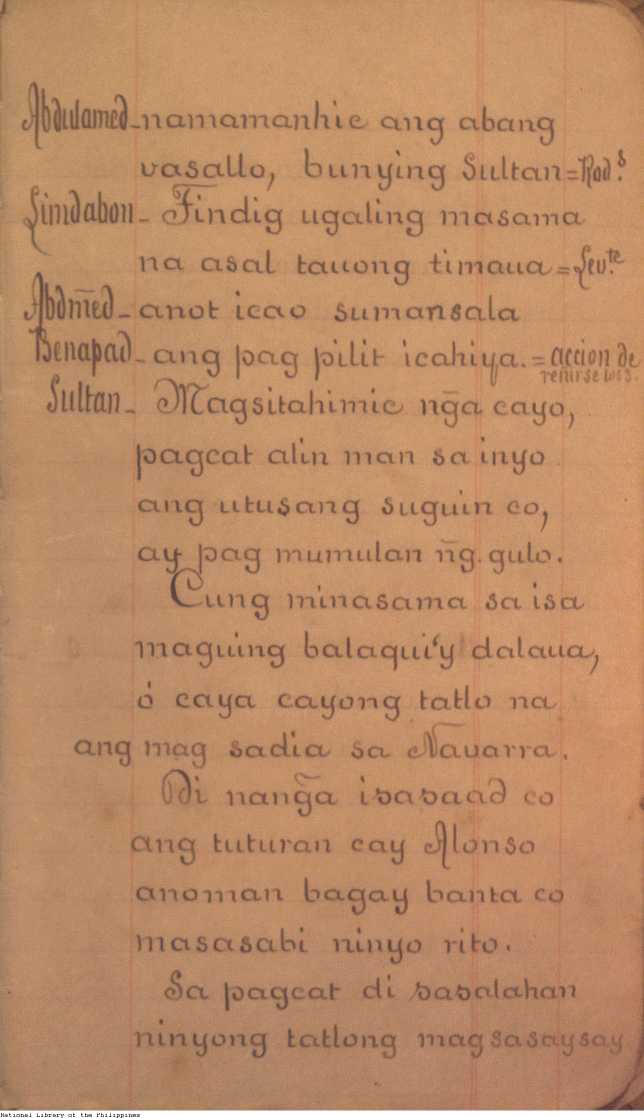 Abdulamed - namamanhic ang abang
vasallo, bunying Sultan = Rod.s
Limdabon - Tindig ugaling masama
na asal tauong timaua = Lev.te
Abdm̃ed - anot icao sumansala
Benapad - ang pag pilit icahiya. = accion de
reñirse los 3.
Sultan - Magsitahimic ng̃a cayo,
pagcat alin man sa inyo
ang utusang suguin co,
ay pag mumulan ñg. gulo.
Cung minasama sa isa
maguing balaqui'y dalaua,
ó caya cayong tatlo na
ang mag sadia sa Navarra.
Di nang̃a isasaad co
ang tuturan cay Alonso
anoman bagay banta co
masasabi ninyo rito.
Sa pagcat di sasalahan
ninyong tatlong magsasaysay
National Library of the Philippines